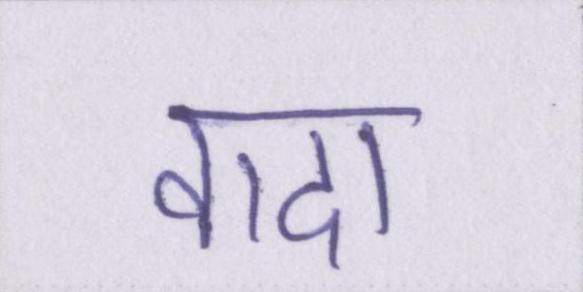 वादा